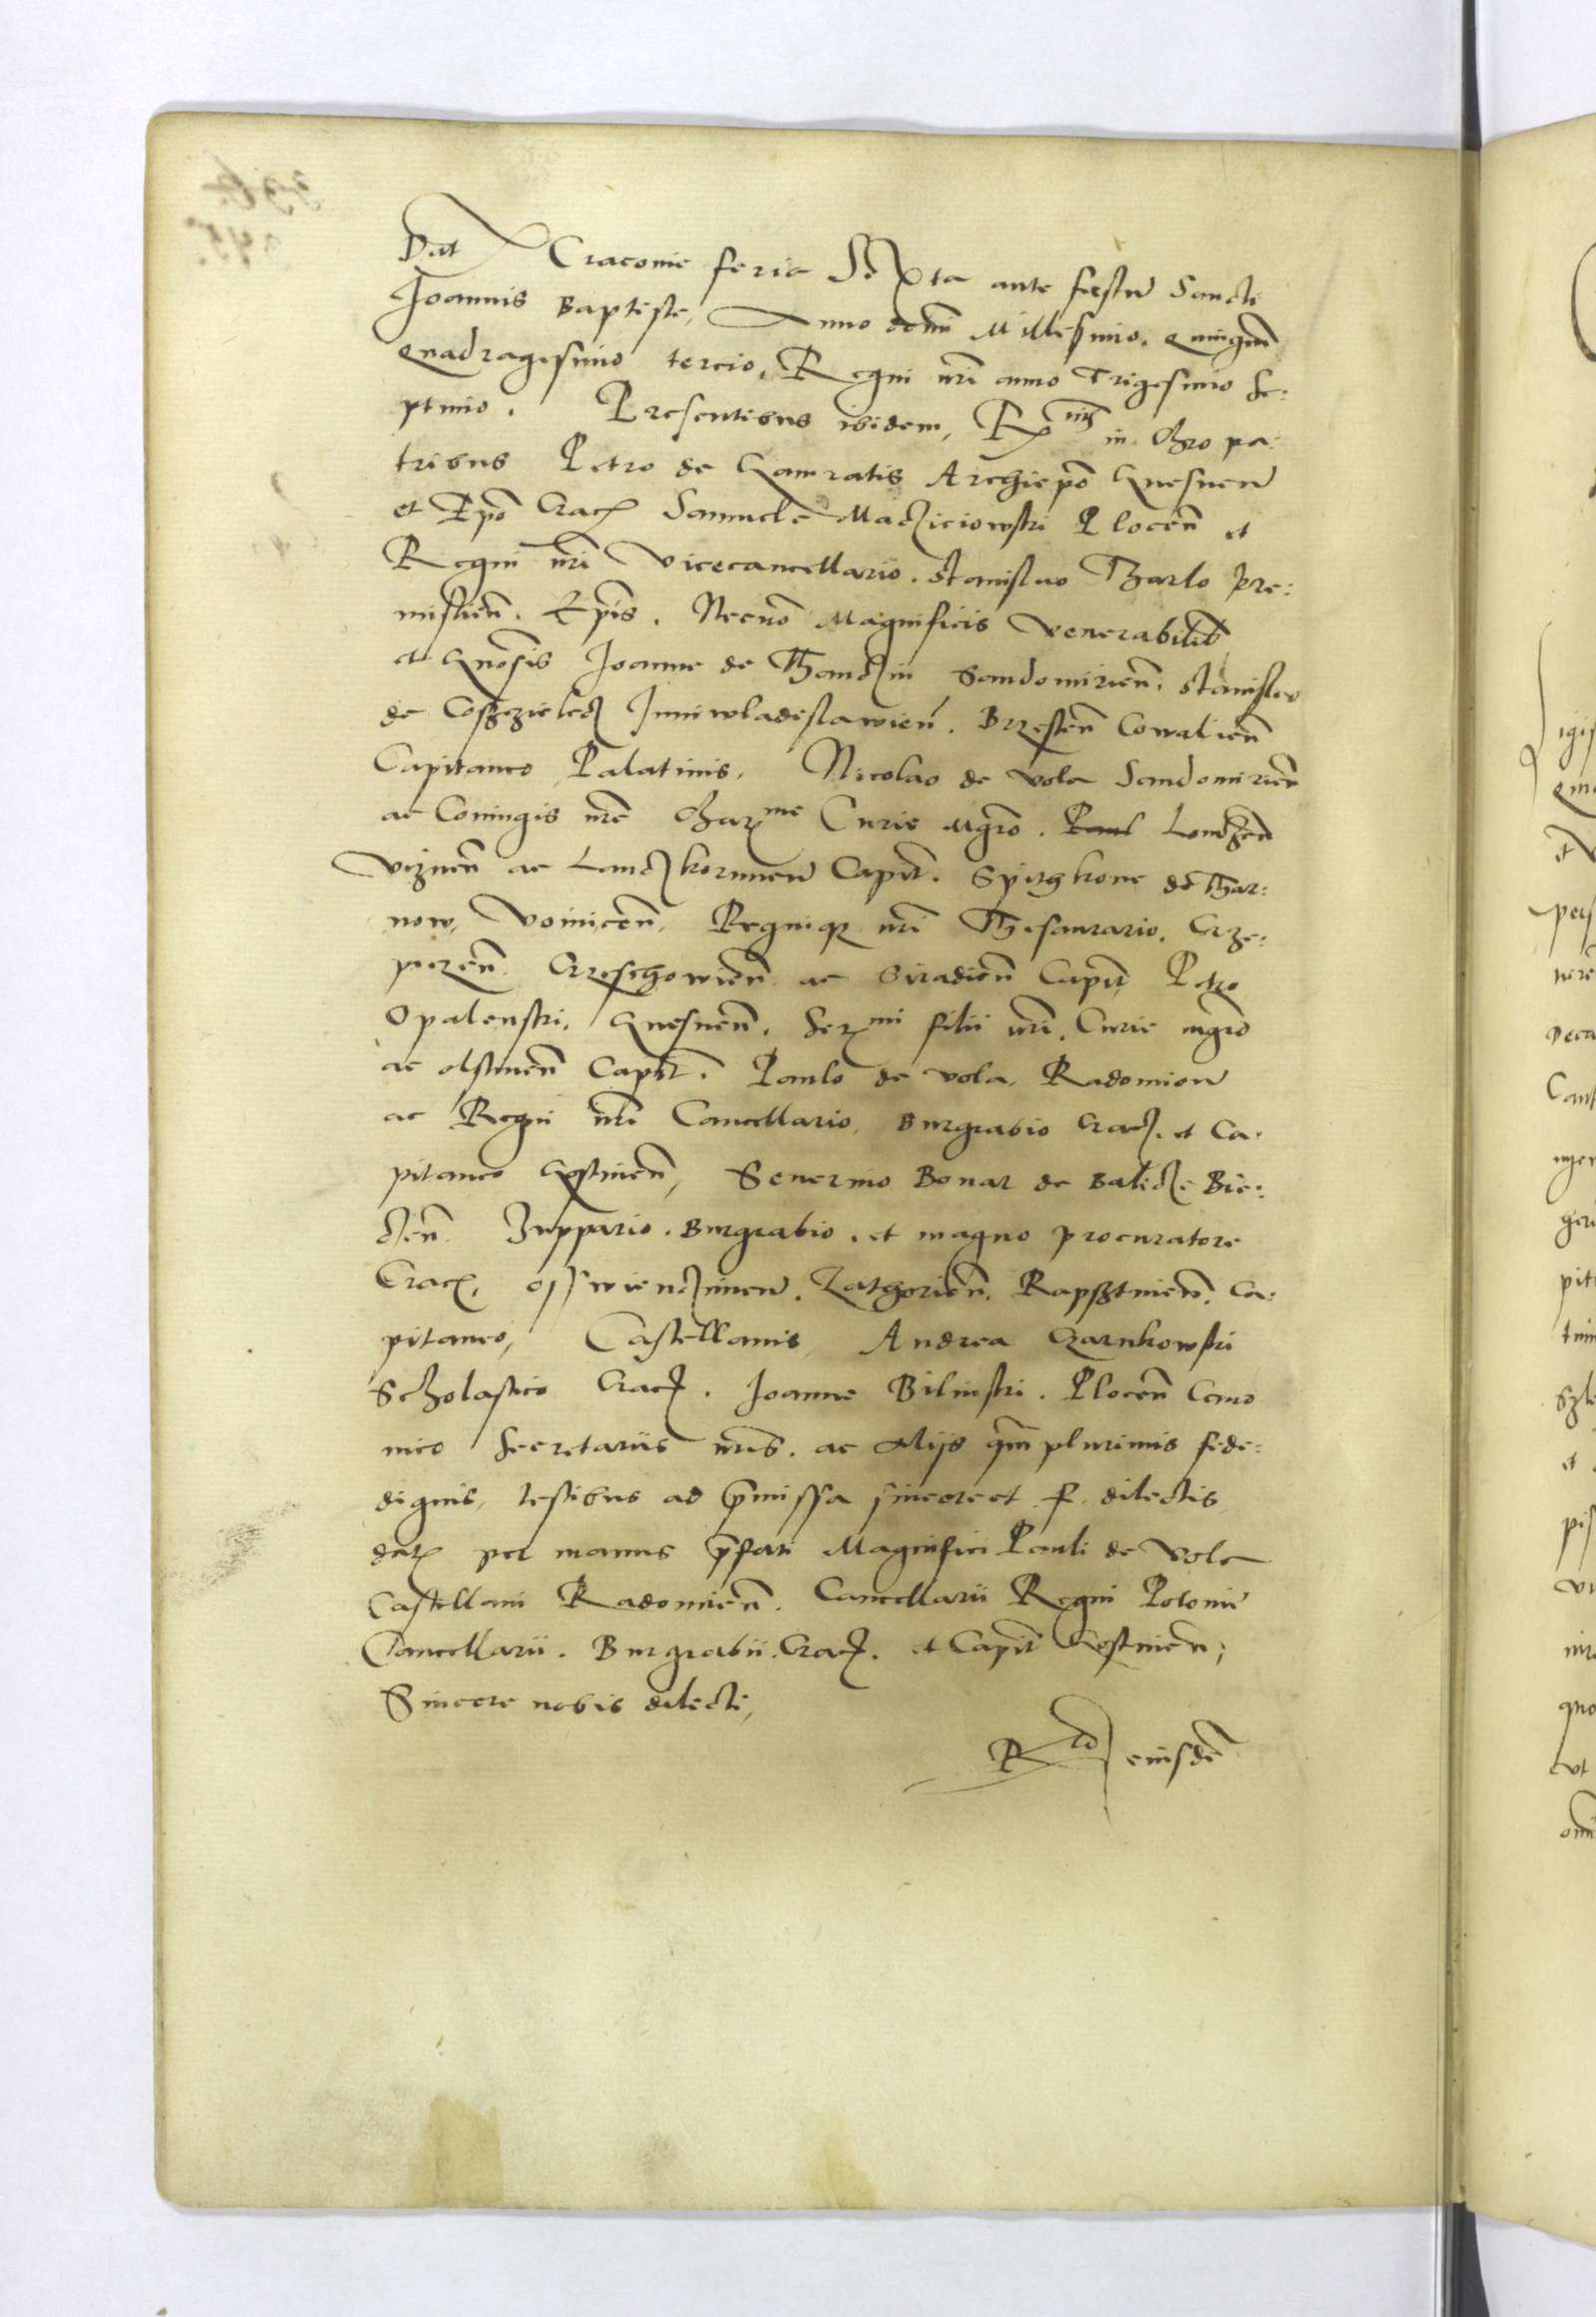 Dat Cracovie feria Sexta ante festu Sancti
Joannis Baptiste, Anno domi Millesimo. Quingen
Quadragesimo tercio, Regni nri anno Trigesimo se:
ptimo. Presentibus ibidem, Rx mis in chro pa:
tribus Petro de Gamratis Archiepo Gnesnen
et Epo Crac Samuele Macziciowski Plocen et
Regni nri Vicecancellario. Stanislao Tharlo Pre:
mislien. Epis. Necno Magnificis venerabilib
et Gnosis Joanne de Thanczin Sandomirien. Stanislao
de Coszczielecz Juniwladislavien. Brzesten Cowalien
Capitaneo Palatinis. Nicolao de Vola Sandomirien
ac Coniugis nre Charme Curie Mgro.
Viznen ac Lanczkorunen Capit. Spithkone de Thar:
now, Voinicen, Regniq nri Thesaurario. Crze:
piczen. Crzeschowien ac Siradien Capit, Petro
Opalenski, Gnesnen, Ser mi filii nri. Curie mgro
ac olstinen Capit. Paulo de Vola, Radomien
ac Regni nri Cancellario, Burgrabio Crac. et Ca:
pitaneo Gostinen, Severino Bonar de Balicze Bie:
czen. Zuppario. Burgrabio. et magno procuratore
Crac, osswienczimen. Zathorien. Rapsztinen. Ca:
pitaneo, Castellanis, Andrea Czarnkowski
Scholastico Crac. Joanne Bilinski. Plocen Cano
nico Secretariis nris. ac Alijs qm plurimis fide:
dignis, testibus ad pmissa sincere et f. dilectis
dat per manus pfati Magnifici Pauli de Vola
Castellani Radomien. Cancellarii Regni Polonie
Cancellarii. Burgrabii. Crac. et Capit Gostinen,
Sincere nobis dilecti,
R eiusde